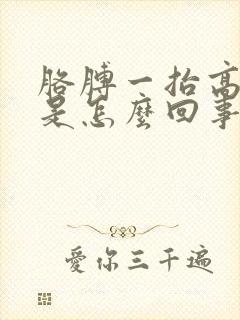 胳膊一抬高
是怎麼回事
愛你三千遍